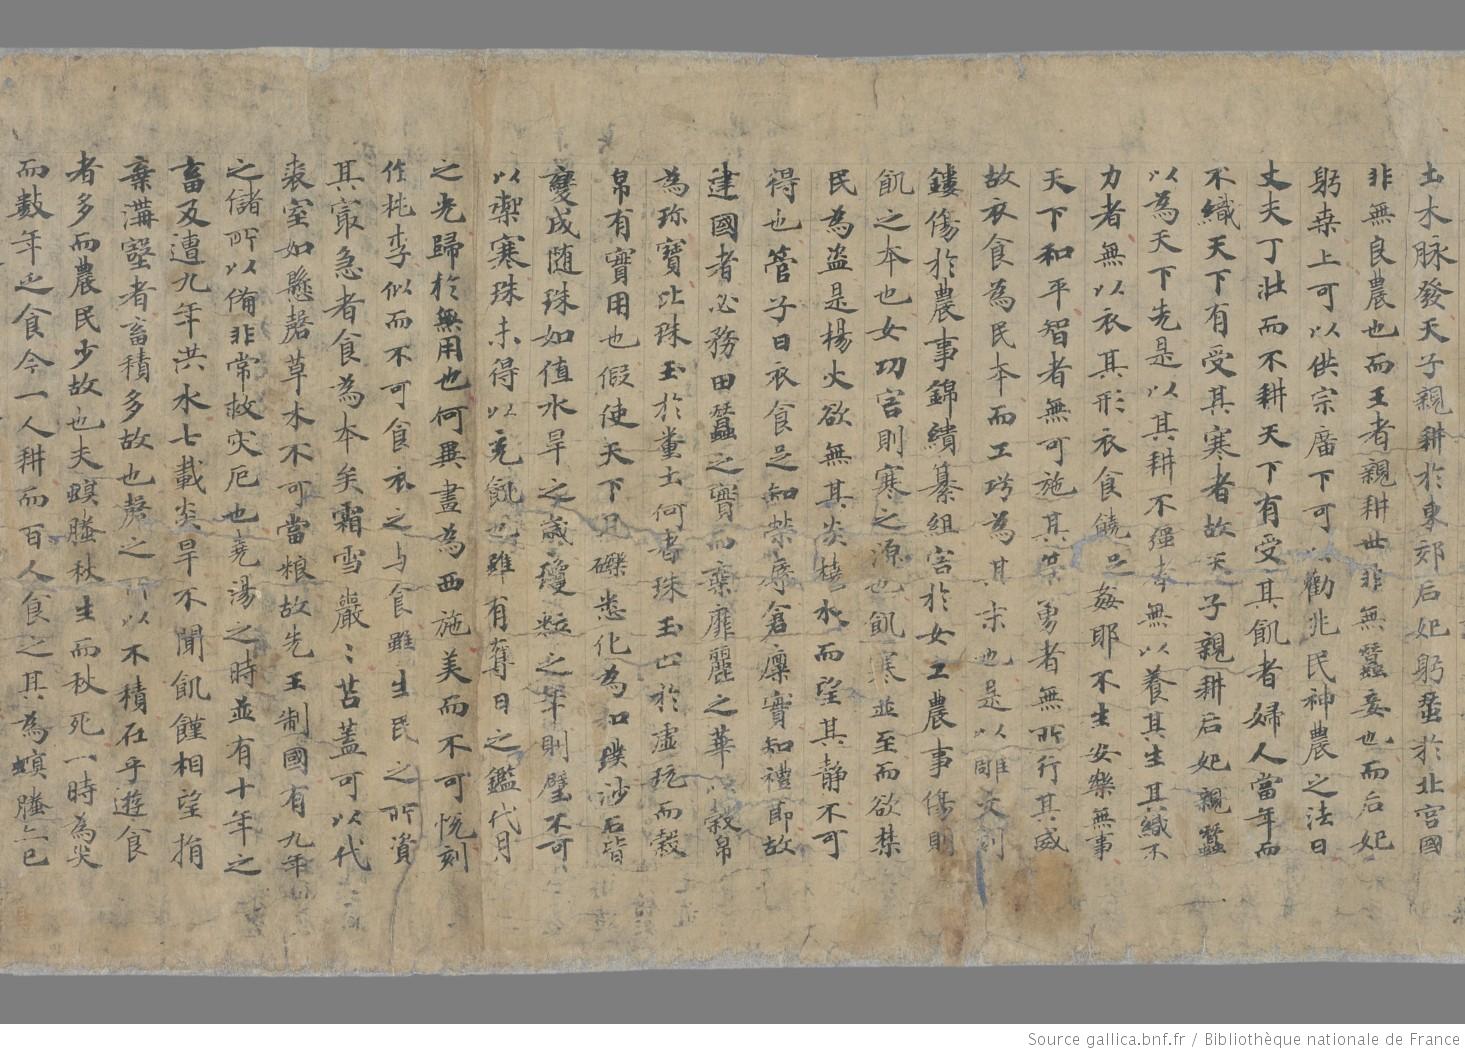 土木脉發天子親耕於東郊后妃躬蚕於北宮國
非無良農也而王者親耕世非無蠶妾也而后妃
躬桒上可以供宗廟下可以勸兆民神農之法曰
丈夫丁壯而不耕天下有受其飢者婦人當年而
不織天下有受其寒者故天子親耕后妃親蠶
以為天下先是以其耕不强者無以養其生其織不
力者無以衣其形衣食饒足姦耶不生安樂無事
天下和平智者無可施其策勇者無所行其威
故衣食為民本而工巧為其末也是以雕文刻
鏤傷於農事錦繢綦組害於女工農事傷則
飢之本也女功害則寒之源也飢寒並至而欲禁
民為盗是楊火欲無其炎橈水而望其静不可
得也管子曰衣食足知榮辱倉廪實知禮節故
建國者必務田蠶之實而棄靡麗之華以穀帛
為珎寶比珠玉於糞土何者珠玉止於虚玩而穀
帛有實用也假使天下凡礫悉化為和璞沙石皆
變成随珠如值水旱之歲瓊粒之年則璧不可
以禦寒珠未得以充飢也雖有奪日之鑑代月
之光歸於無用也何異畫為西施美而不可悅刻
作桃李似而不可食衣之与食雖生民之所資
其冣急者食為本矣霜雪巖〻苫蓋可以代
裘室如懸磬草木不可當粮故先王制國有九年
之儲所以俻非常救灾厄也堯湯之時並有十年之
畜及遭九年洪水七載炎旱不聞飢饉相望捐
棄溝壑者畜積多故也穀之所以不積在乎遊食
者多而農民少故也夫螟螣秋生而秋死一時為灾
而數年乏食今一人耕而百人食之其為螟螣亦已